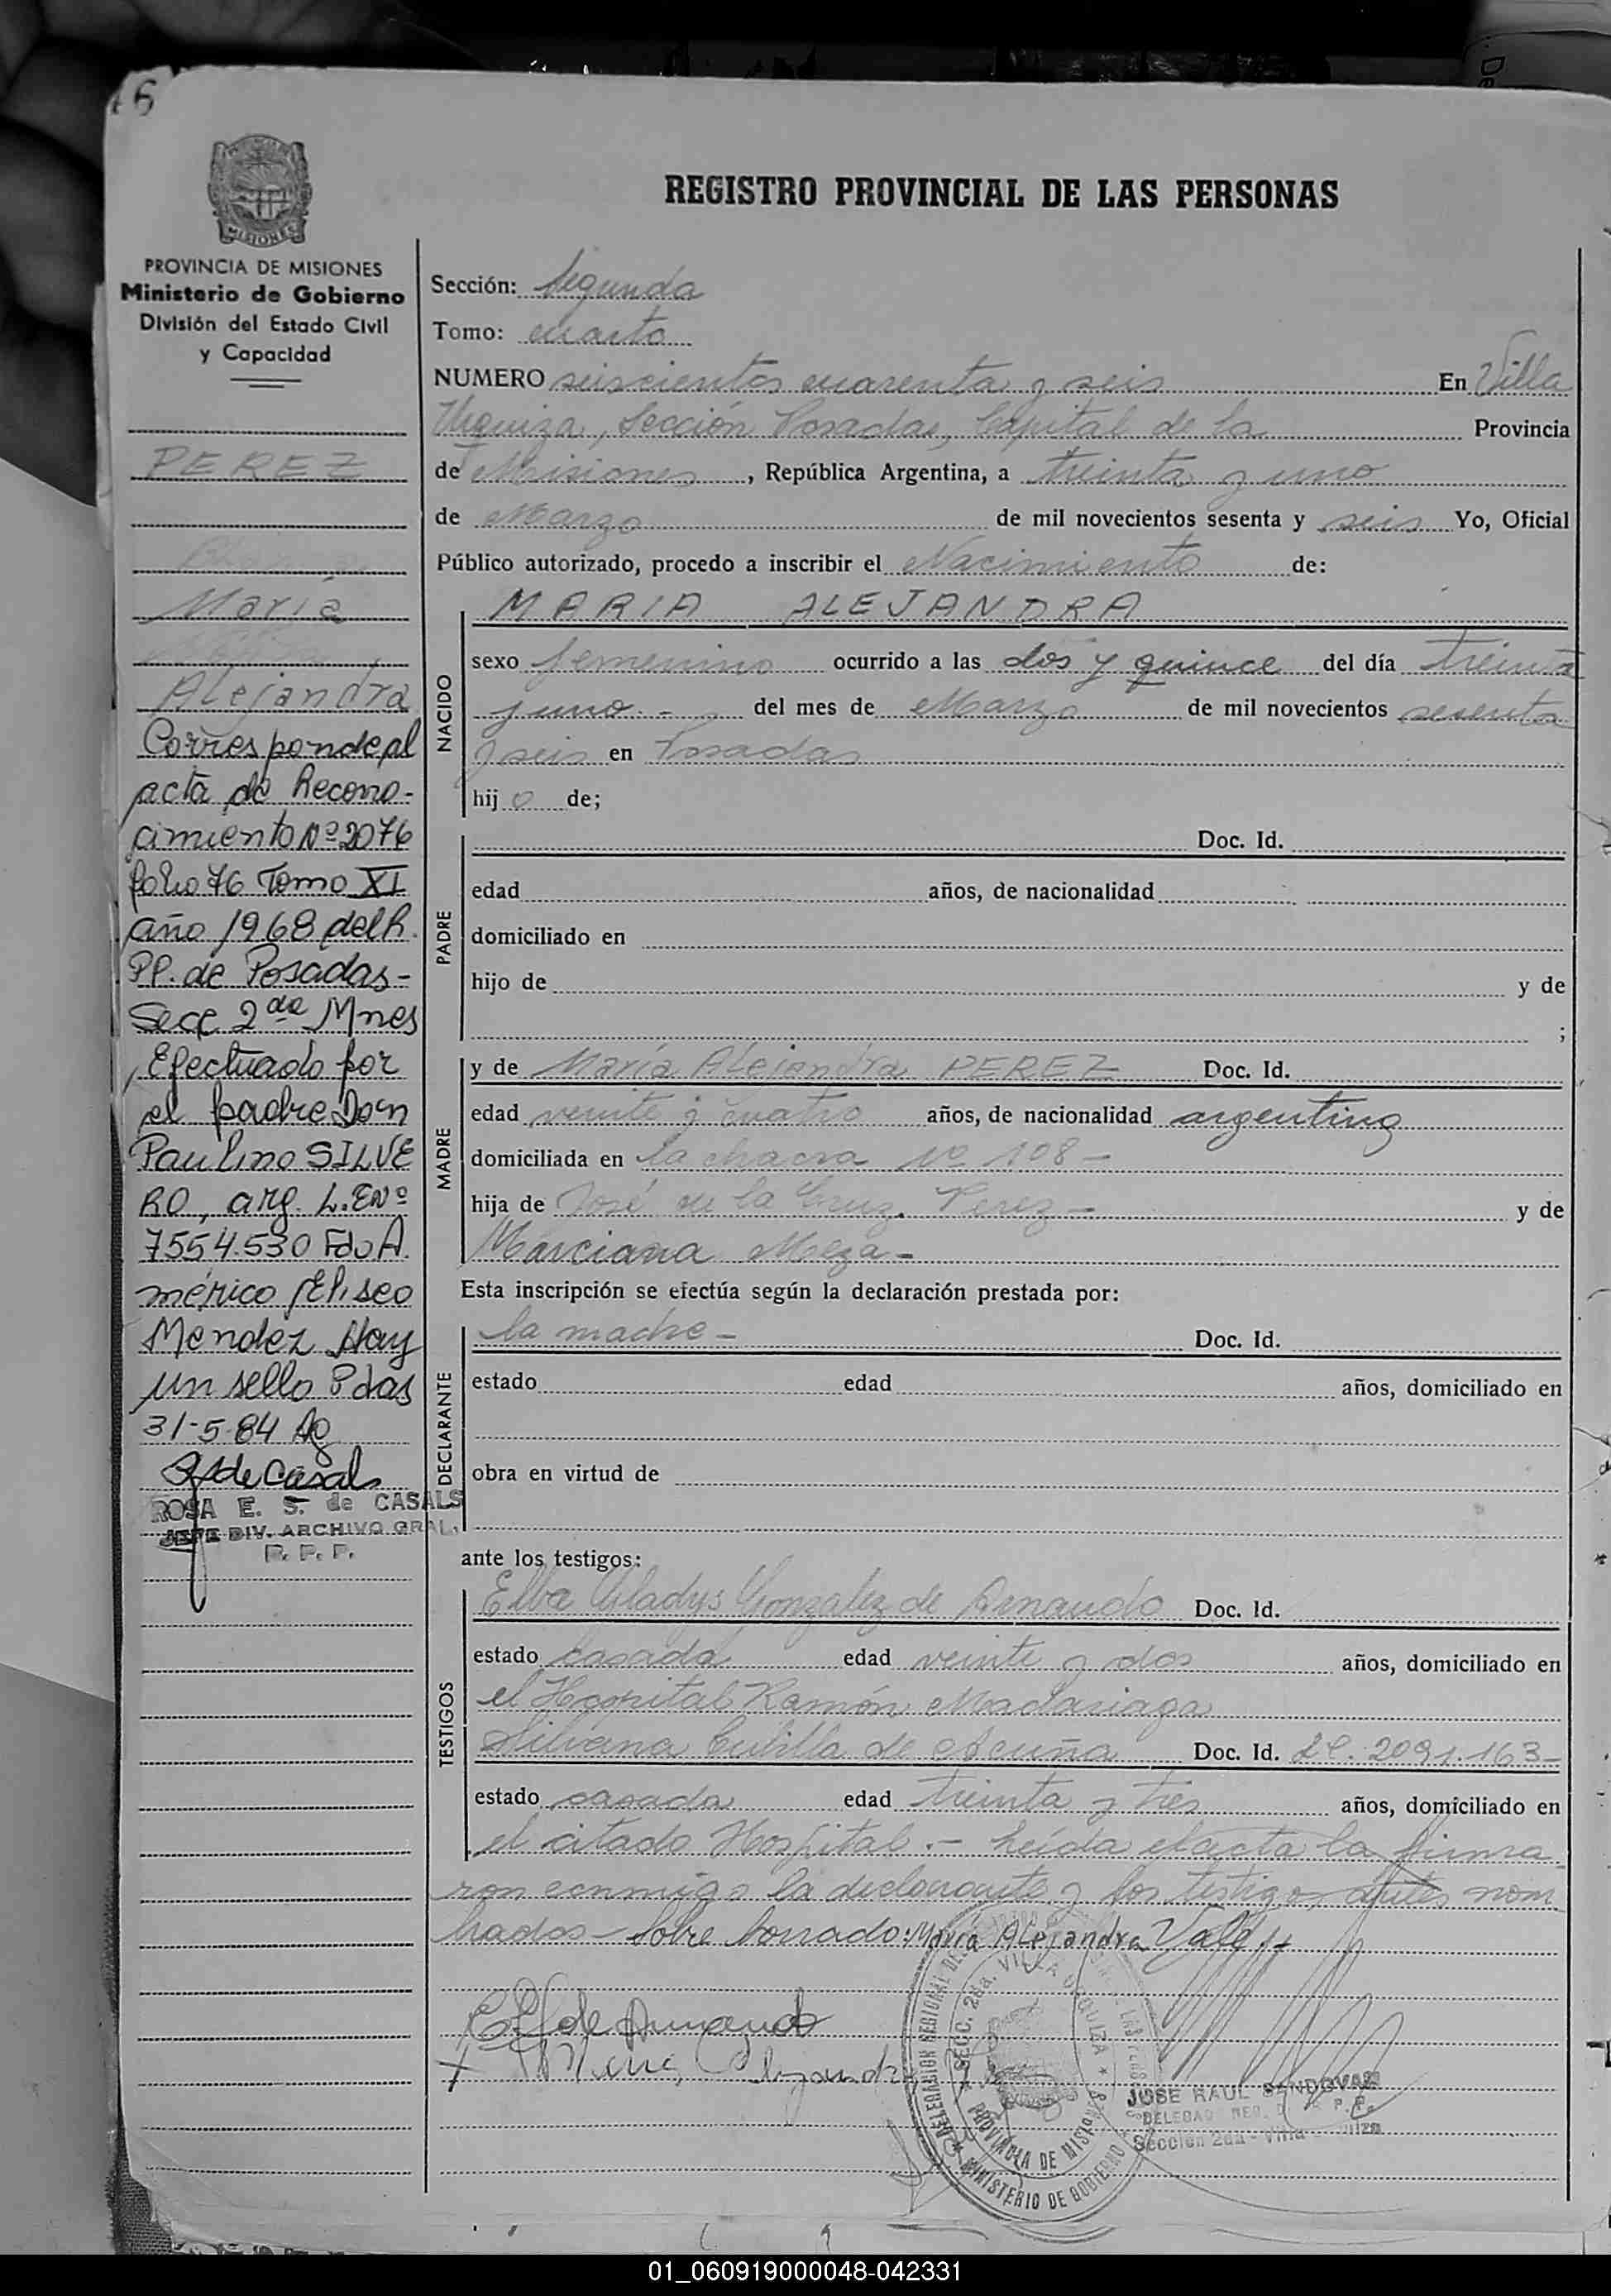 REGISTRO PROVINCIAL DE LAS PERSONAS
MISIONES
PROVINCIA DE MISIONES
Ministerio de Gobierno
División del Estado Civil
y Capacidad
PEREZ
María
Alejandra
Corresponde al
acta de Recono-
cimiento Nº 2076
folio 76 Tomo XI
año 1968 del R.
PP. de Posadas-
Secc 2da Mnes
Efectuado por
el padre Don
Paulino SILVE
RO, arg. L.E Nº
7554.530 Fdo A.
mérico Eliseo
Mendez Hay
un sello Pdas
31-5-84
ROSA E. S. de CASALS
JEFE DIV. ARCHIVO GRAL.
R. P. P.
Sección: Segunda
Tomo: cuarto
NUMERO seiscientos cuarenta y seis En Villa
Urquiza, Sección Posadas, Capital de la Provincia
de Misiones, República Argentina, a treinta y uno
de Marzo de mil novecientos sesenta y seis Yo, Oficial
Público autorizado, procedo a inscribir el Nacimiento de:
NACIDO
MARIA ALEJANDRA
sexo femenino ocurrido a las dos y quince del día treinta
y uno.- del mes de Marzo de mil novecientos sesenta
y seis en Posadas
hij o de;
PADRE
Doc. Id.
edad años, de nacionalidad
domiciliado en
hijo de y de
;
MADRE
y de María Alejandra PEREZ Doc. Id.
edad veinte y cuatro años, de nacionalidad argentina
domiciliada en la chacra Nº 108-
hija de José de la Cruz Perez- y de
Marciana Meza-
Esta inscripción se efectúa según la declaración prestada por:
DECLARANTE
la madre- Doc. Id.
estado edad años, domiciliado en
obra en virtud de
ante los testigos:
TESTIGOS
Elba Gladys Gonzalez de Arnaudo Doc. Id.
estado casada edad veinte y dos años, domiciliado en
el Hospital Ramón Madariaga
Silvana Cubilla de Acuña Doc. Id. LC. 2091.163-
estado casada edad treinta y tres años, domiciliado en
el citado Hospital.- Leída el acta la firma
ron conmigo la declarante y los testigos antes nom
brados- Sobre borrado: María Alejandra Vale
E G de Arnaudo
JOSE RAUL SANDOVAL
Sección 2da - Villa
SECC. 2da. VILLA URQUIZA
PROVINCIA DE MISIONES
MINISTERIO DE GOBIERNO
01_060919000048-042331